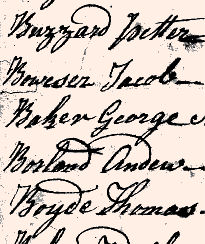 Buzzard Petter
Boweser Jacob
Baker George
Borland Andew
Boyde Thomas